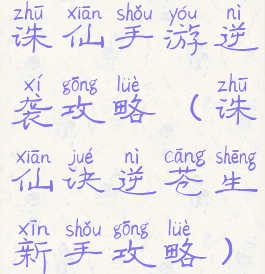 zhū xiān shǒu yóu nì
诛仙手游逆
xí gōng lüè zhū
袭攻略(诛
xiān jué nì cāng shēng
仙诀逆苍生
xīn shǒu gōng lüè
新手攻略)